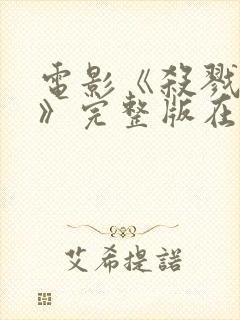 電影《殺戮
》完整版在
艾希提諾